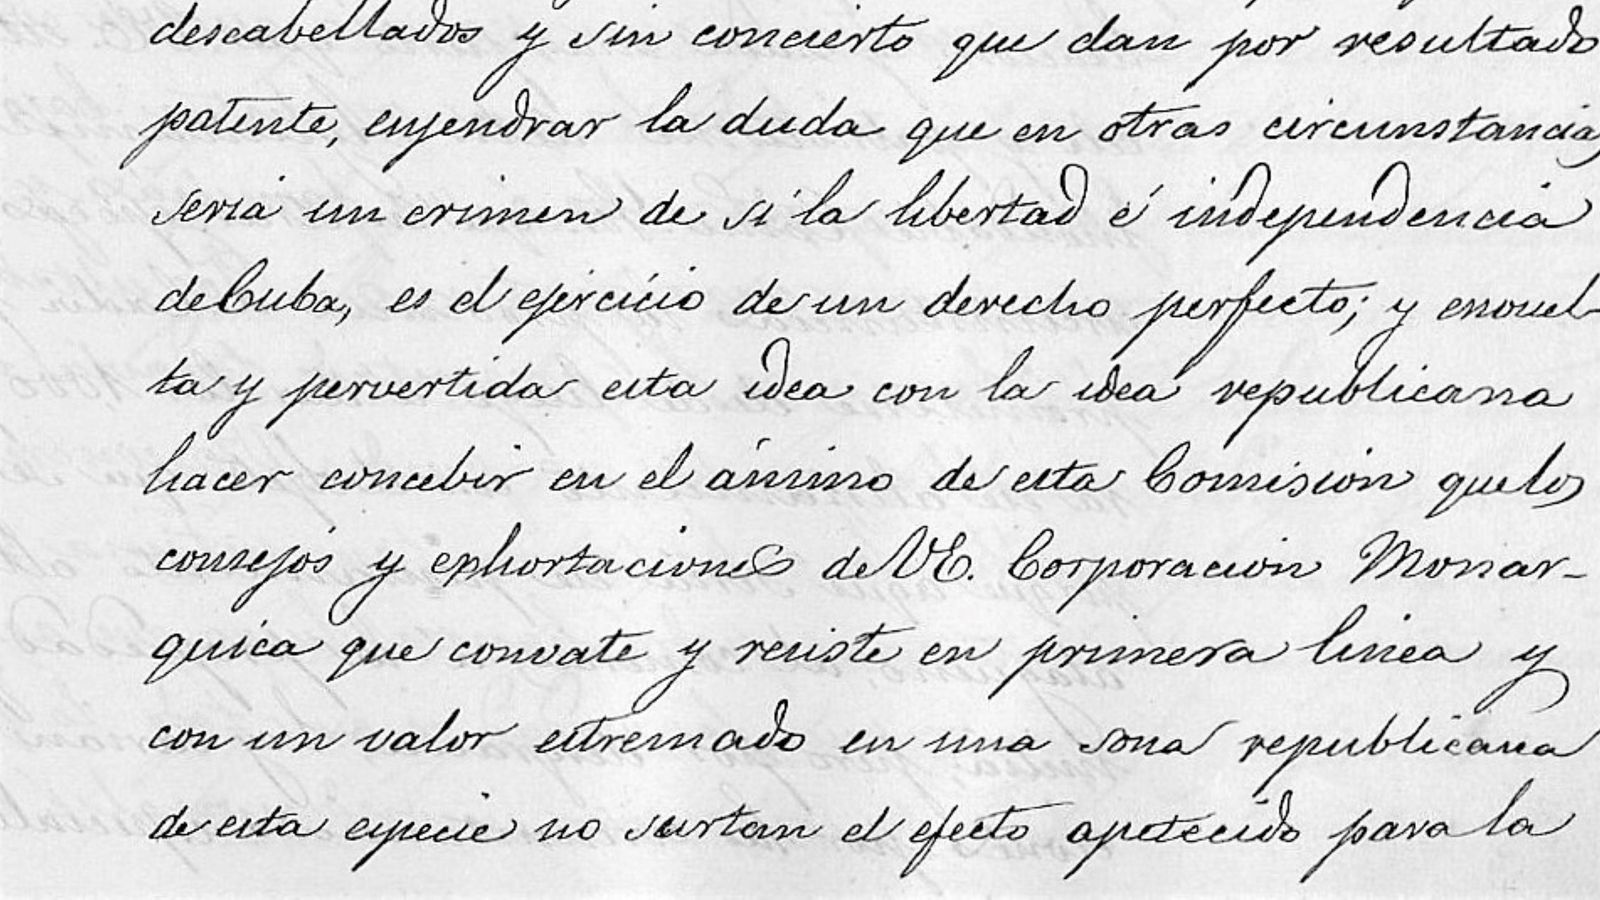 descabellados y sin concierto que dan por resultado
patente, enjendrar la duda que en otras circunstancias
seria un crimen de si la libertad é independencia
de Cuba, es el ejercicio de un derecho perfecto; y envuel-
ta y pervertida esta idea con la idea republicana
hacer concebir en el ánimo de esta Comision que los
consejos y exhortaciones de VE. Corporacion Monar-
quica que convate y reciste en primera linea y
con un valor estremado en una sona republicana
de esta especie no surtan el efecto apetecido para la